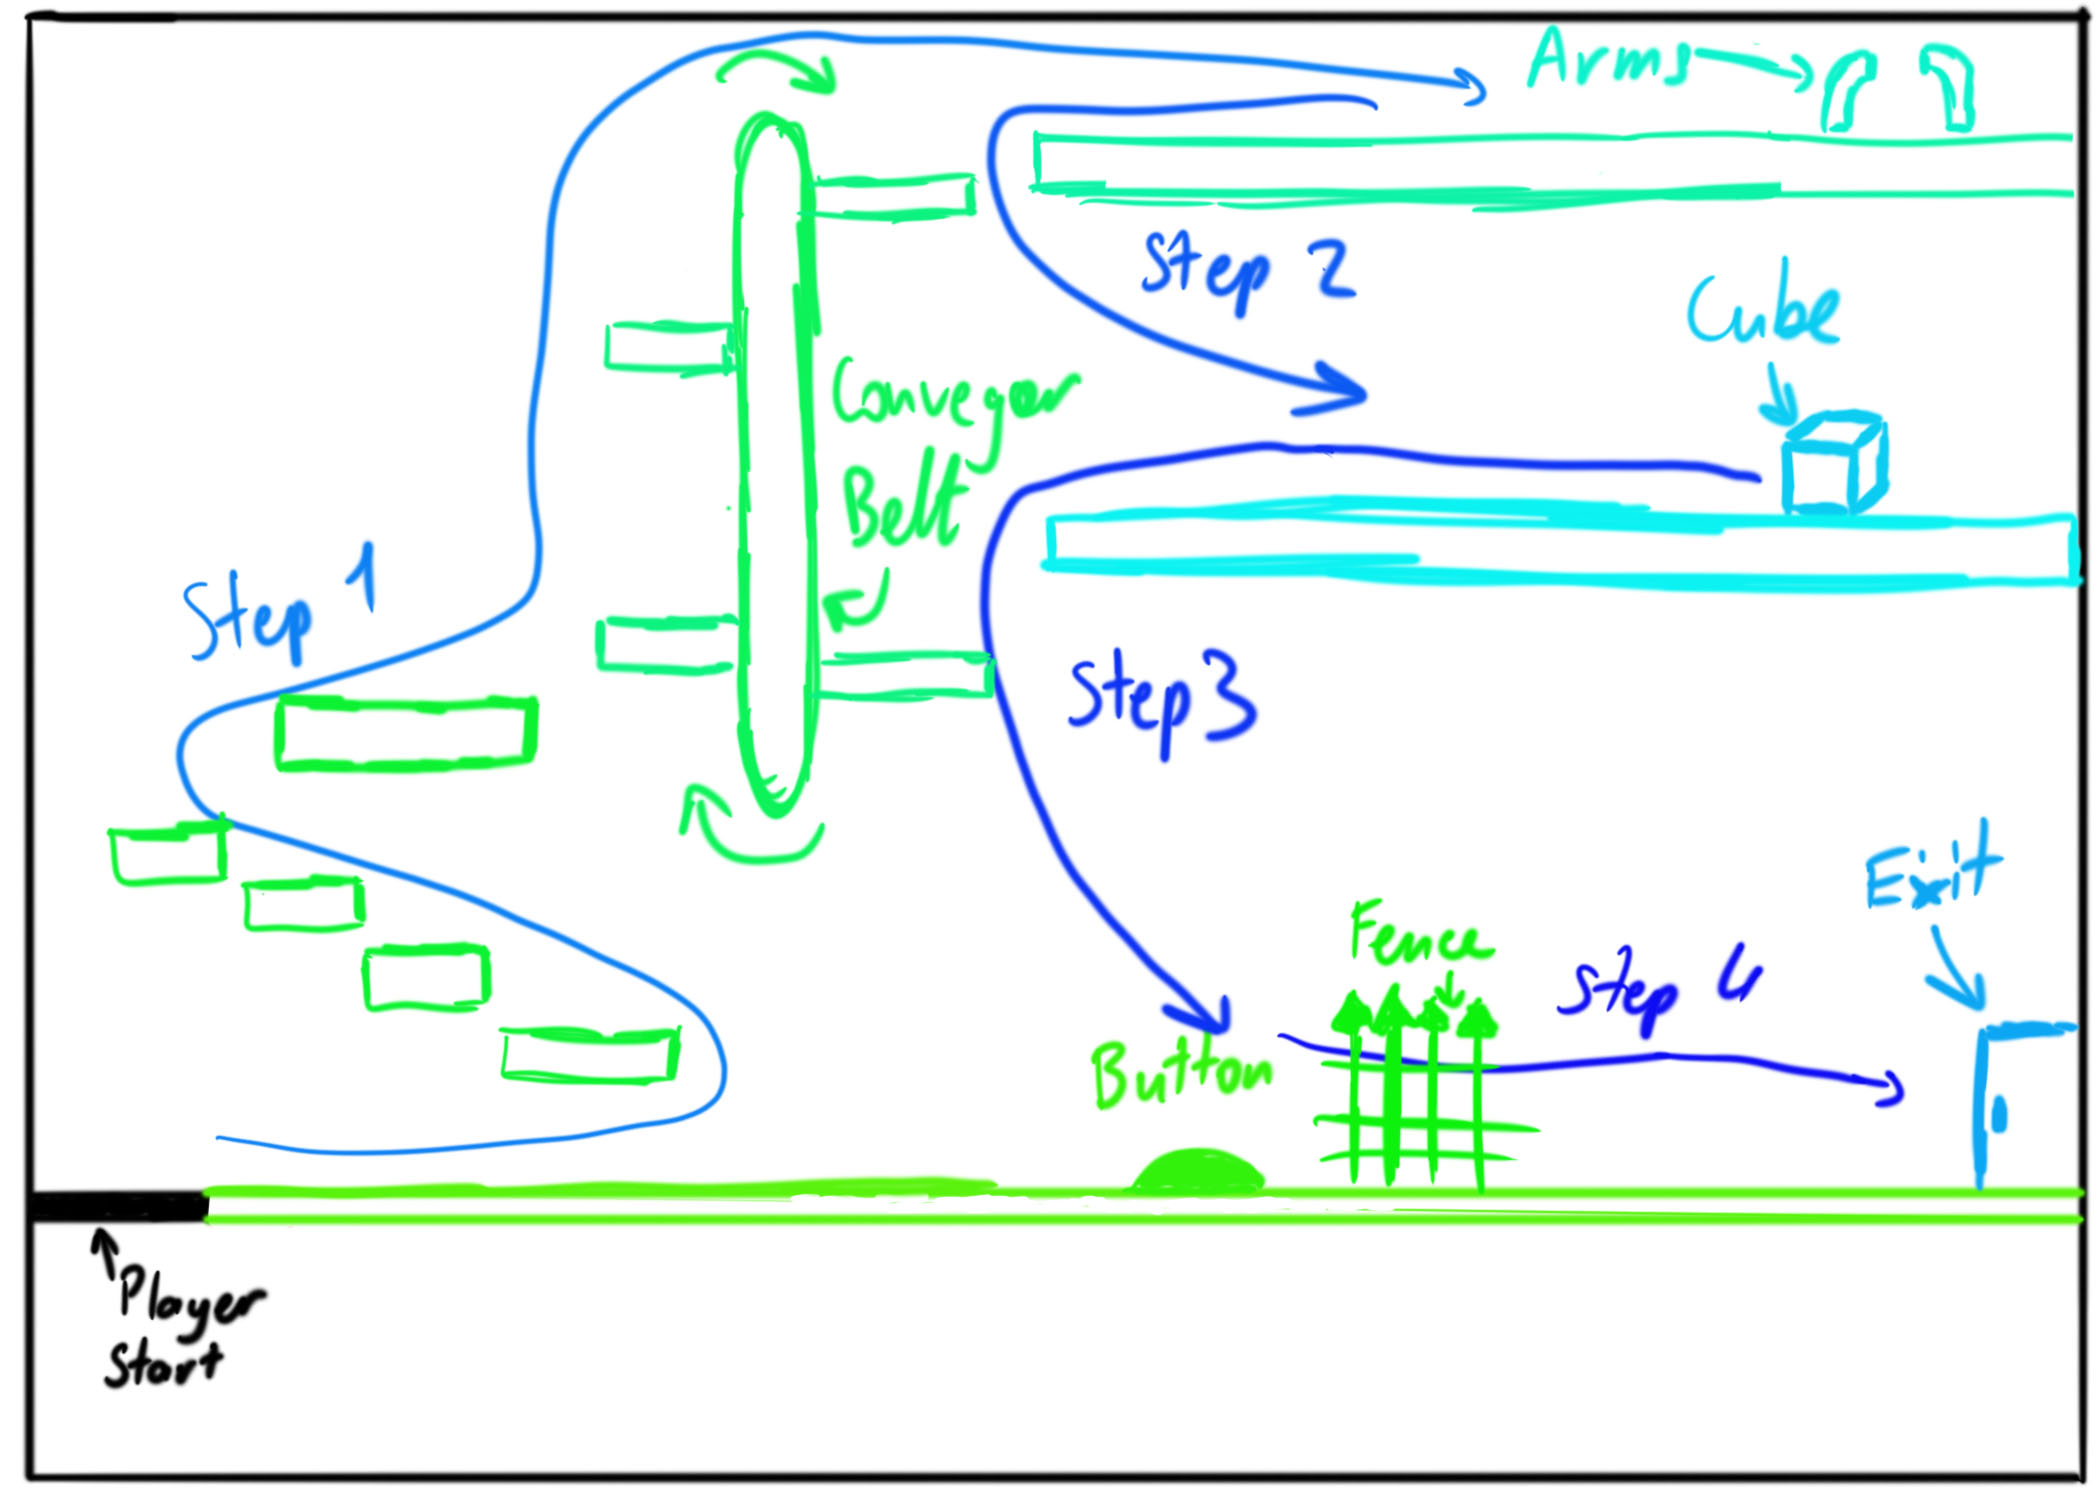 Arms
Step 2
Cube
Conveyor
Belt
Step 1
Step 3
Exit
Fence
Step 4
Button
Player
Start